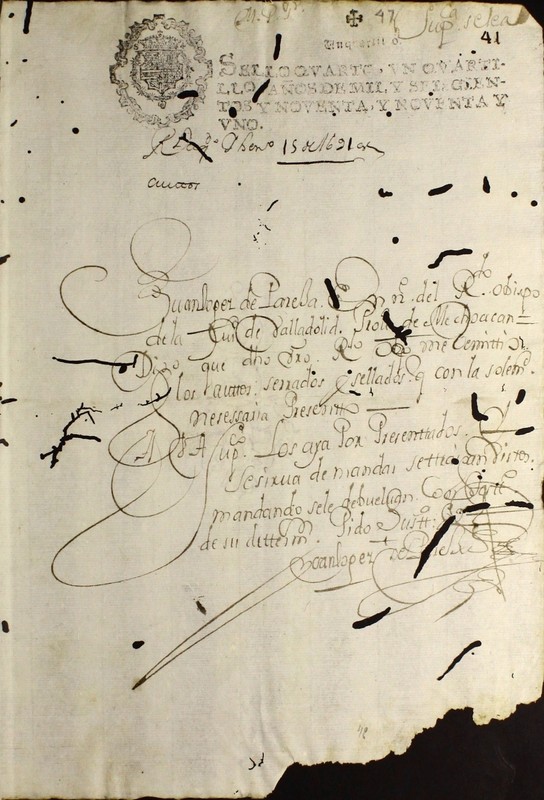 M. P. Sr.
47 Supca. se lea
41
Un quartillo.
SELLO QVARTO, VN QVARTI-
LLO, AÑOS DE MIL, Y SEISCIEN-
TOS Y NOVENTA, Y NOVENTA Y
VNO.
Henо 15 de 1691 as
autos
Juan lopez de Pareja. En ne. del Rdo. obispo
de la Ciud. de Valladolid. Prova. de Mechoacan =
Digo que dho Rdo. obpo me remitti
los autos serrados y sellados. q con la solemd.
nesessaria Presento
A V A Supco. Los aya Por Presentados. y
se sirva de mandar se traigan
mandando se le debuelvan. Con
de su dettermn. Pido Justt.
Juan lopez de Pareja